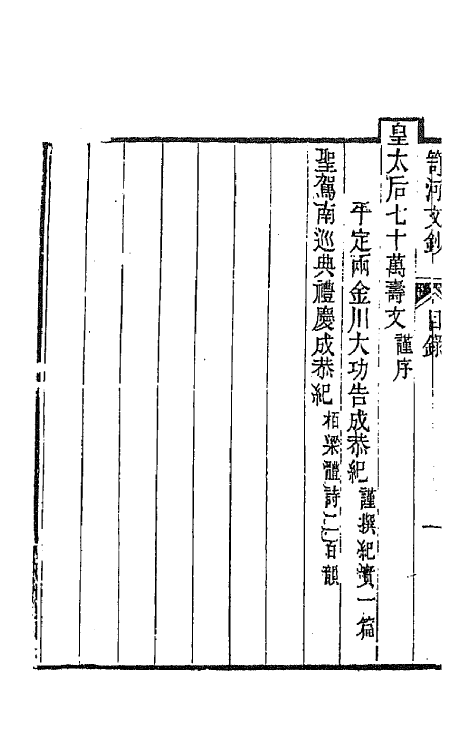 笥河文鈔 目錄 一
皇太后七十萬壽文 謹序
平定兩金川大功告成恭紀 謹撰紀實一篇
聖駕南巡典禮慶成恭紀 栢梁體詩一百韻